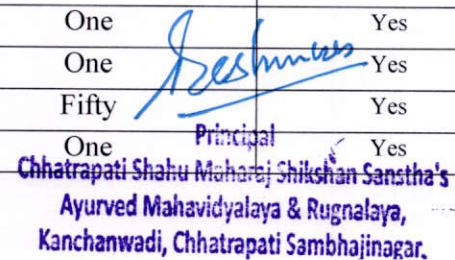 One Yes
One Yes
Fifty Yes
One Yes
Principal
Chhatrapati Shahu Maharaj Shikshan Sanstha's
Ayurved Mahavidyalaya & Rugnalaya,
Kanchanwadi, Chhatrapati Sambhajinagar.